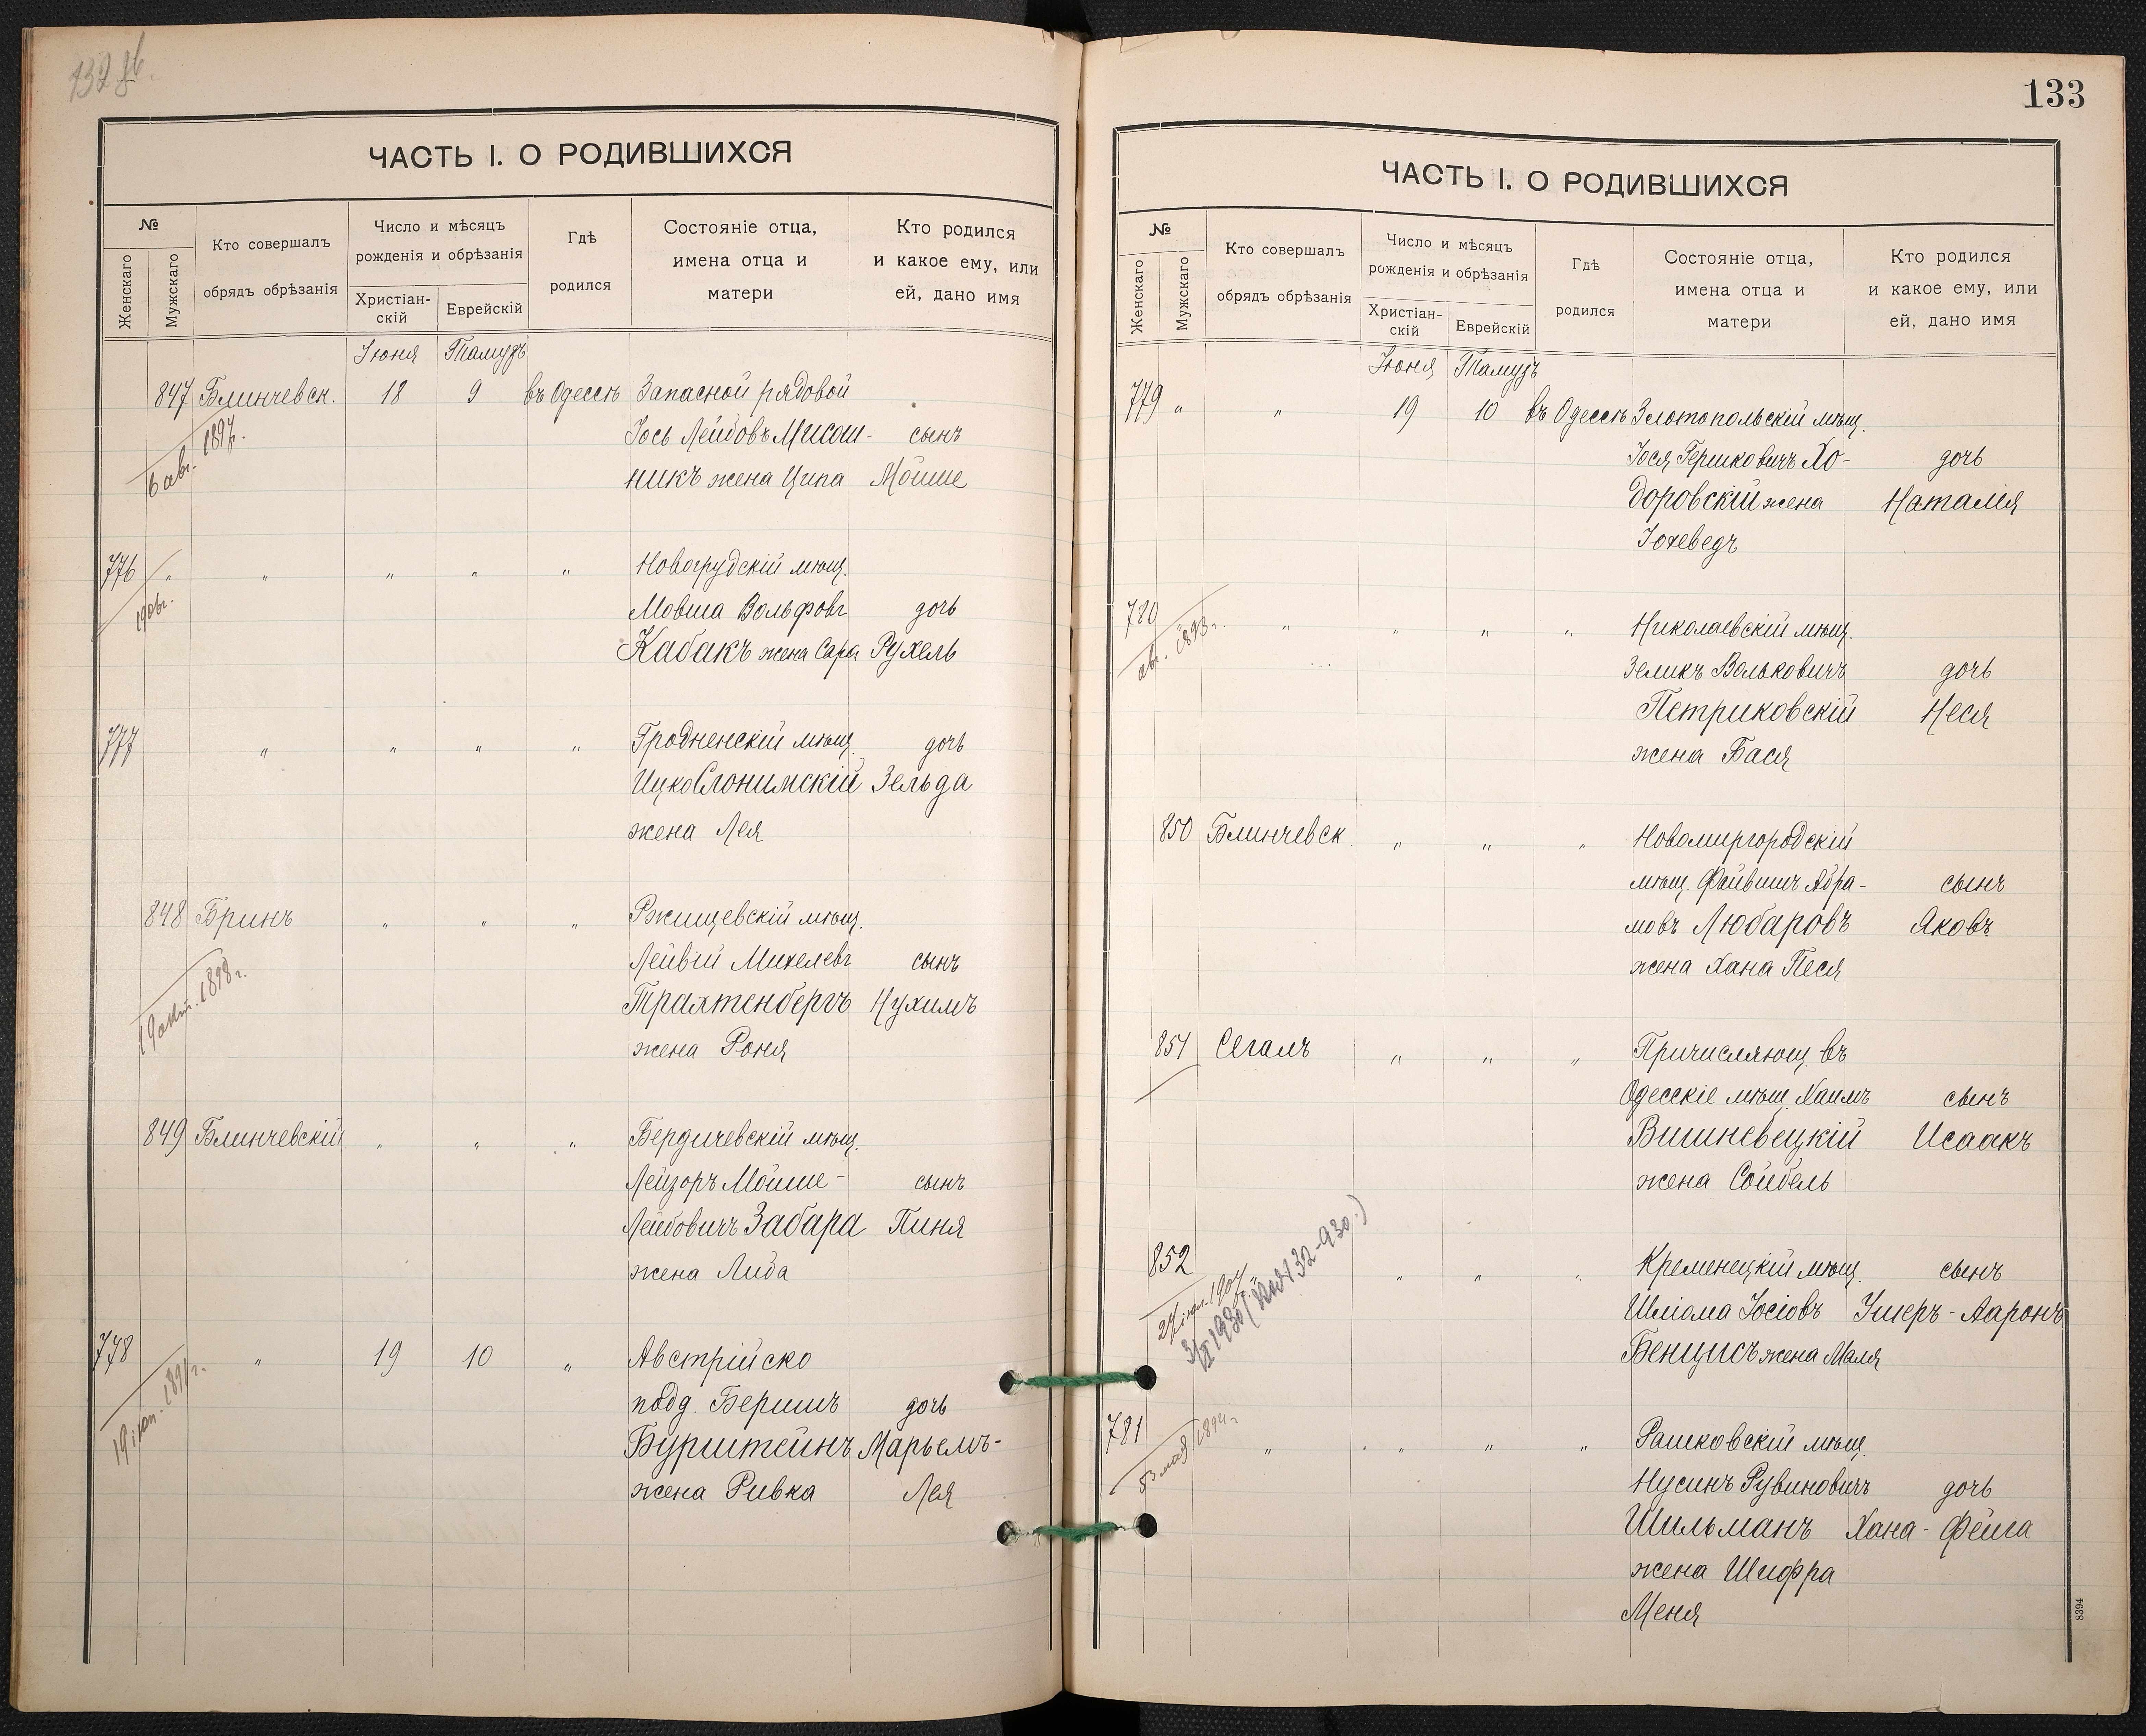 132 об.
ЧАСТЬ I. О РОДИВШИХСЯ
№
Женскаго
Мужскаго
Кто совершалъ
обрядъ обрѣзанія
Число и мѣсяцъ
рожденія и обрѣзанія
Христіан-
скій
Еврейскій
Гдѣ
родился
Состояніе отца,
имена отца и
матери
Кто родился
и какое ему, или
ей, дано имя
Іюня Тамузъ
847 Блинчевск. 18 9 въ Одессѣ Запасной рядовой
Іось Лейбовъ Мисош- сынъ
никъ жена Ципа Мойше
6 авг. 1897г.
776 " " " " " Новогрудскій мѣщ.
Мовша Вольфовъ дочь
Кабакъ жена Сара Рухель
190 г.
777 " " " " Гродненскій мѣщ. дочь
Ицко Слонимскій Зельда
жена Лея
848 Бринъ " " " Ржищевскій мѣщ.
Лейвій Михелевъ сынъ
Трахтенбергъ Нухимъ
жена Роня
19 окт. 1898 г.
849 Блинчевскій " " " Бердичевскій мѣщ.
Лейзоръ Мойше- сынъ
Лейбовичъ Забара Пиня
жена Либа
778 " 19 10 " Австрійско
подд. Беришъ дочь
Бурштейнъ Марьемъ-
жена Ривка Лея
133
ЧАСТЬ I. О РОДИВШИХСЯ
№
Женскаго
Мужскаго
Кто совершалъ
обрядъ обрѣзанія
Число и мѣсяцъ
рожденія и обрѣзанія
Христіан-
скій
Еврейскій
Гдѣ
родился
Состояніе отца,
имена отца и
матери
Кто родился
и какое ему, или
ей, дано имя
Іюня Тамузъ
779 " " 19 10 въ Одессѣ Златопольскій мѣщ.
Іося Гершковичъ Хо- дочь
доровскій жена Наталія
Іохеведъ
780 " " " " " Николаевскій мѣщ.
Зеликъ Вольковичъ дочь
Петриковскій Неся
жена Бася
авг. 1893 г.
850 Блинчевск " " " Новомиргородскій
мѣщ. Файвишъ Абра- сынъ
мовъ Любаровъ Яковъ
жена Хана Песя
851 Сегалъ " " " Причисляющ. въ
Одесскіе мѣщ. Хаимъ сынъ
Вишневецкій Исаакъ
жена Сойбель
852 " " " " Кременецкій мѣщ. сынъ
Шліома Іосіовъ Ушеръ-Ааронъ
Бенцисъ жена Маля
781 " " " " Рашковскій мѣщ.
Нусинъ Рувиновичъ дочь
Шильманъ Хана-Фейга
жена Шифра
Меня
мая 1894 г.
8394